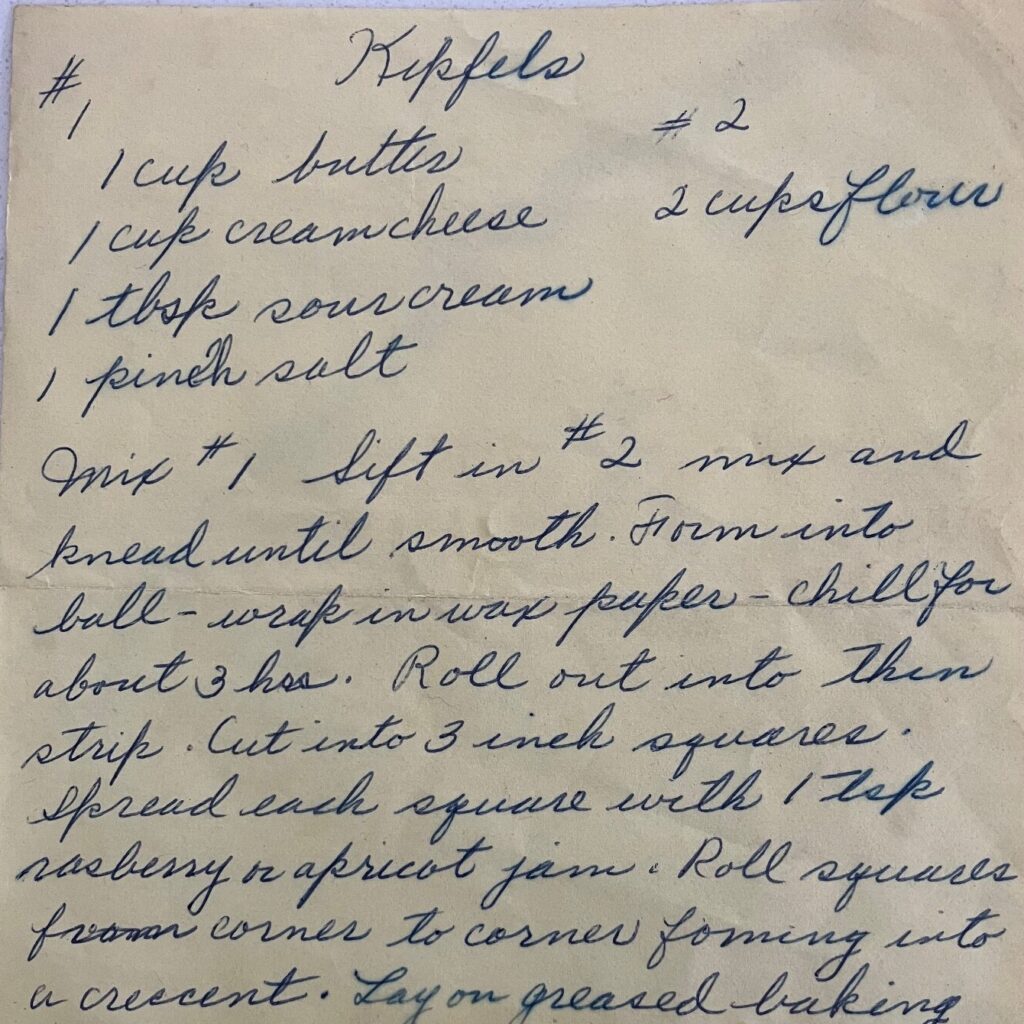 Kipfels
#1
1 cup butter
1 cup creamcheese
1 tbsp sourcream
1 pinch salt
#2
2 cups flour
Mix #1 Sift in #2 mix and
knead until smooth. Form into
ball - wrap in wax paper - chill for
about 3 hrs. Roll out into thin
strip. Cut into 3 inch squares.
Spread each square with 1 tsp
rasberry or apricot jam. Roll squares
from corner to corner foming into
a creccent. Lay on greased baking